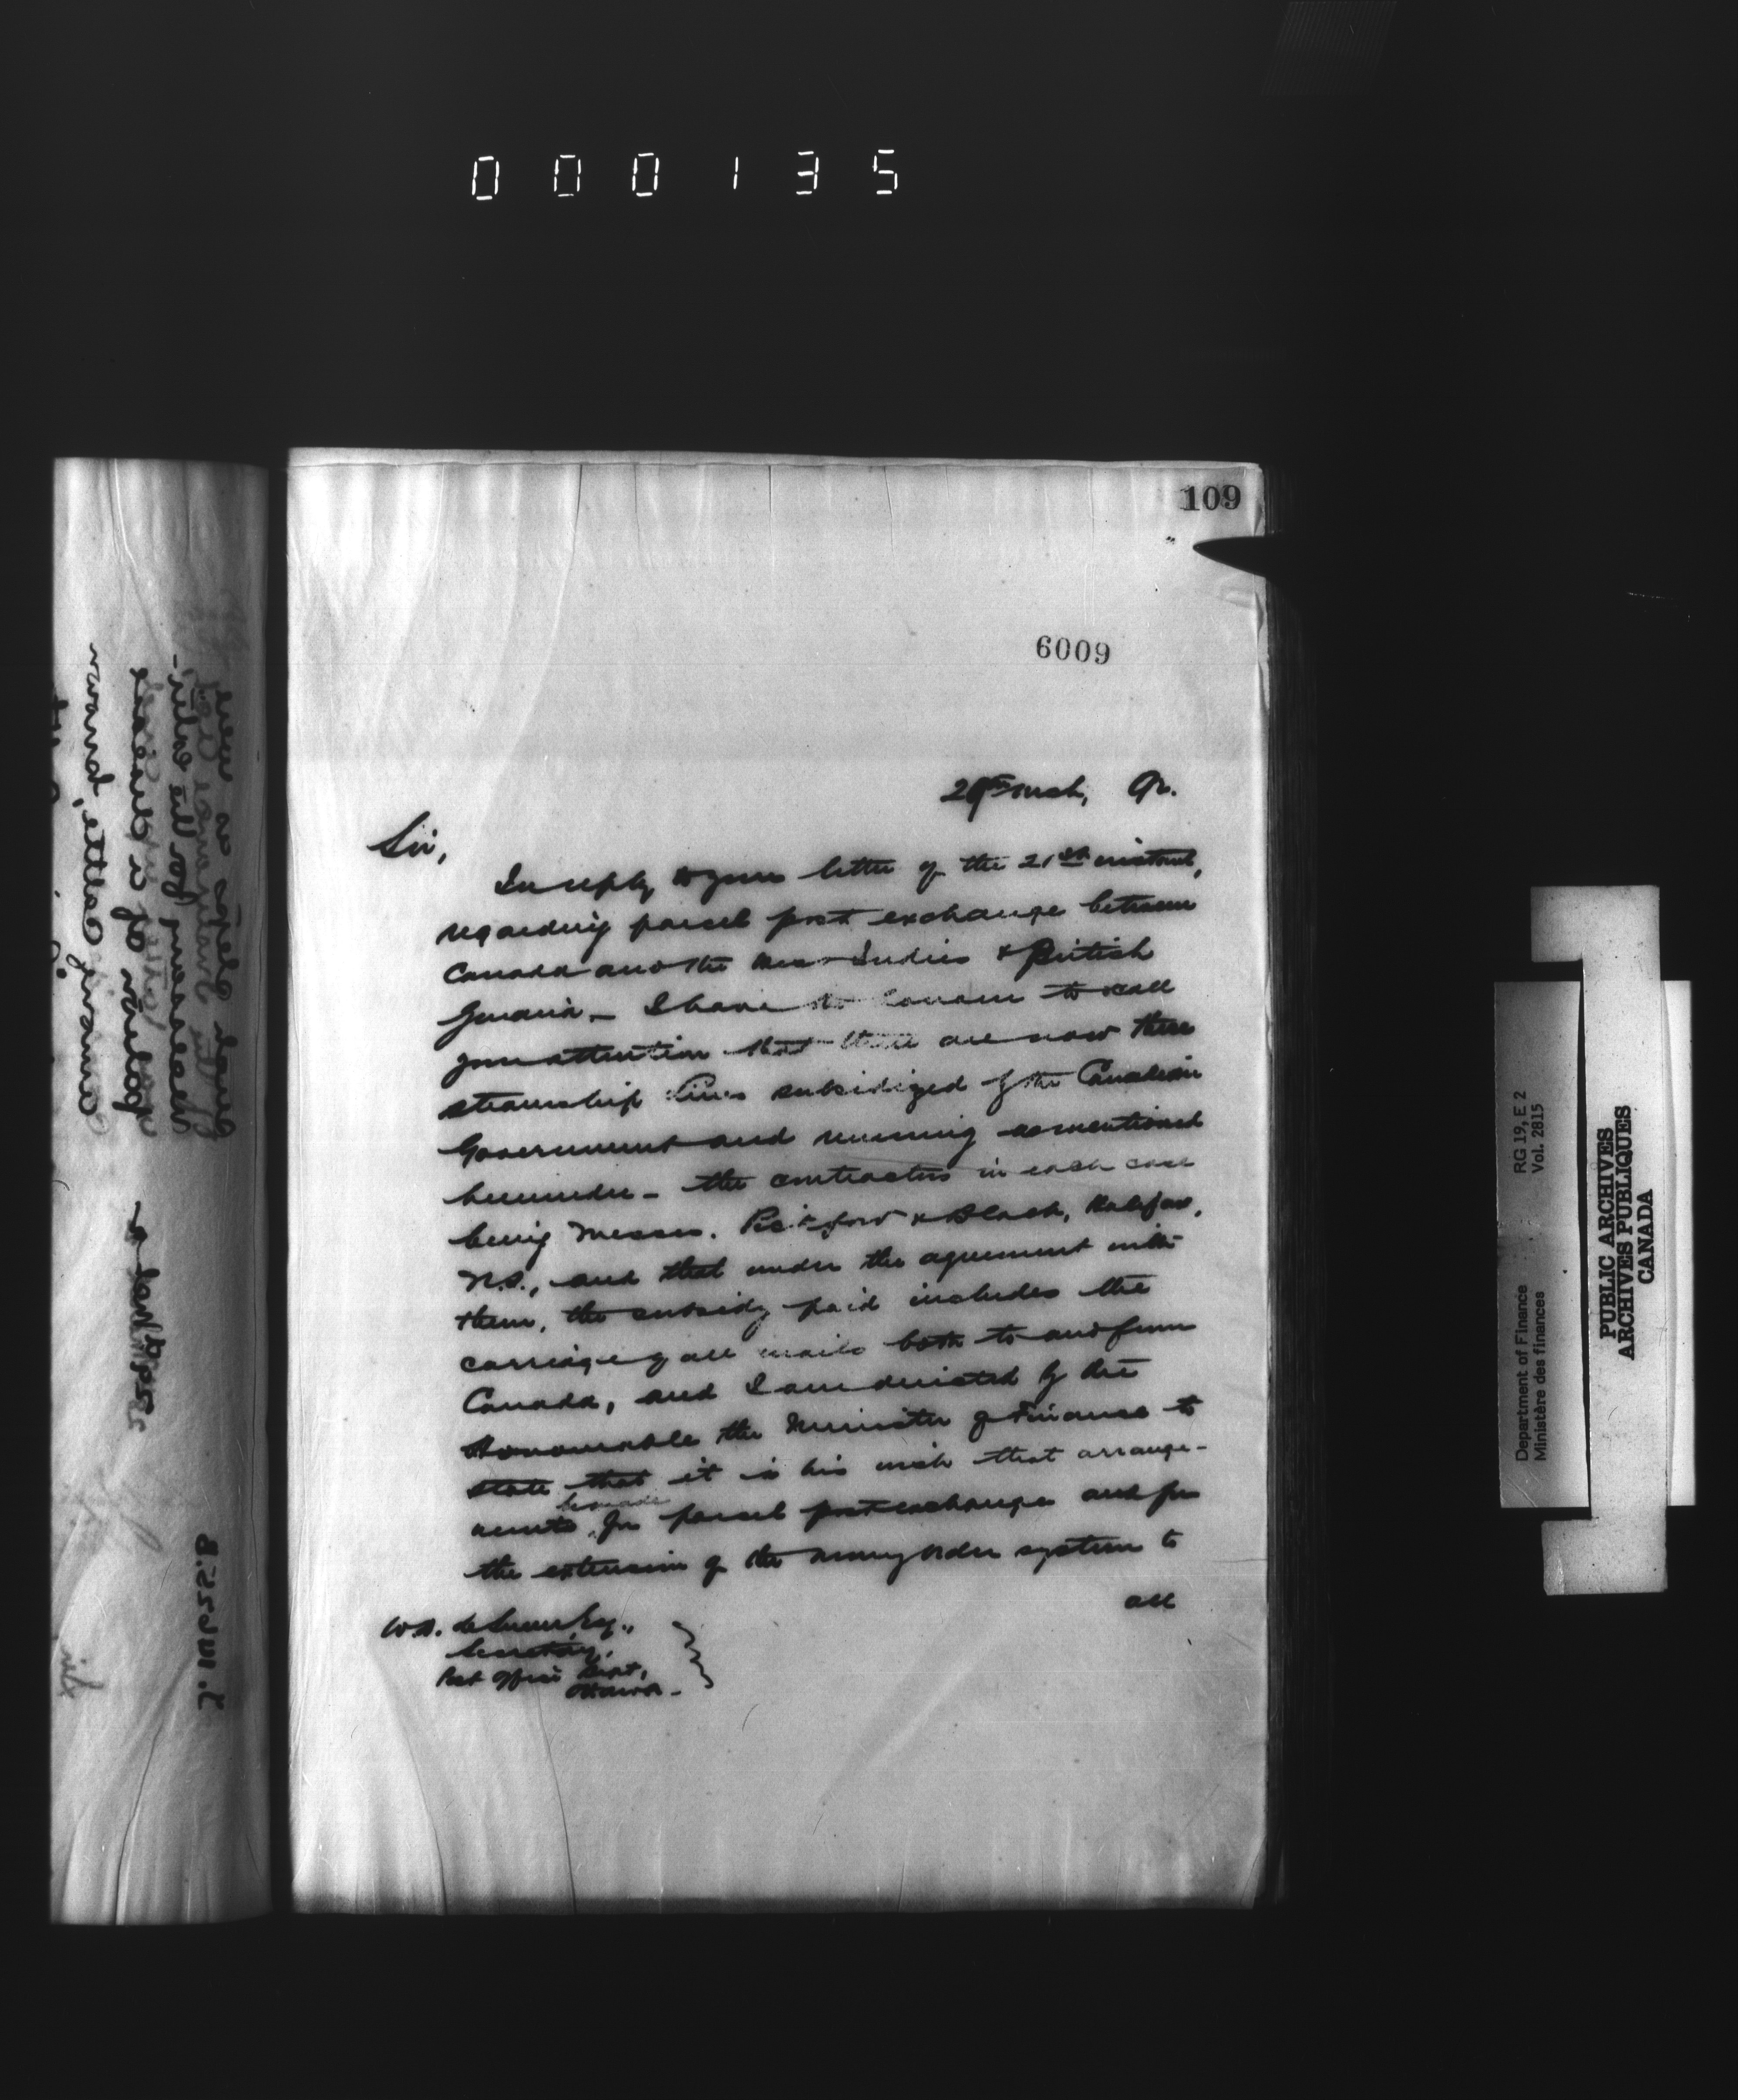 000135
109
6009
March,
Sir,
In reply to your letter of the 21st instant,
regarding parcel post exchange between
Canada and the West Indies & British
Guiana – I have the honour to call
your attention that there are now three
steamship lines subsidized by the Canadian
Government and running as mentioned
hereunder – the contractors in each case
being Messrs. Pickford & Black, Halifax,
N.S., and that under the agreement with
them, the subsidy paid includes the
carriage of all mails both to and from
Canada, and I am directed by the
Honourable the Minister of Finance to
state that it is his wish that arrange-
be made
ments for parcel post exchange and for
the extension of the money order system to
all
W.D. LeSueur Esq.,
Secretary,
Post Office Dept,
Ottawa –
Department of Finance RG 19, E 2
Ministère des finances Vol. 2815
PUBLIC ARCHIVES
ARCHIVES PUBLIQUES
CANADA